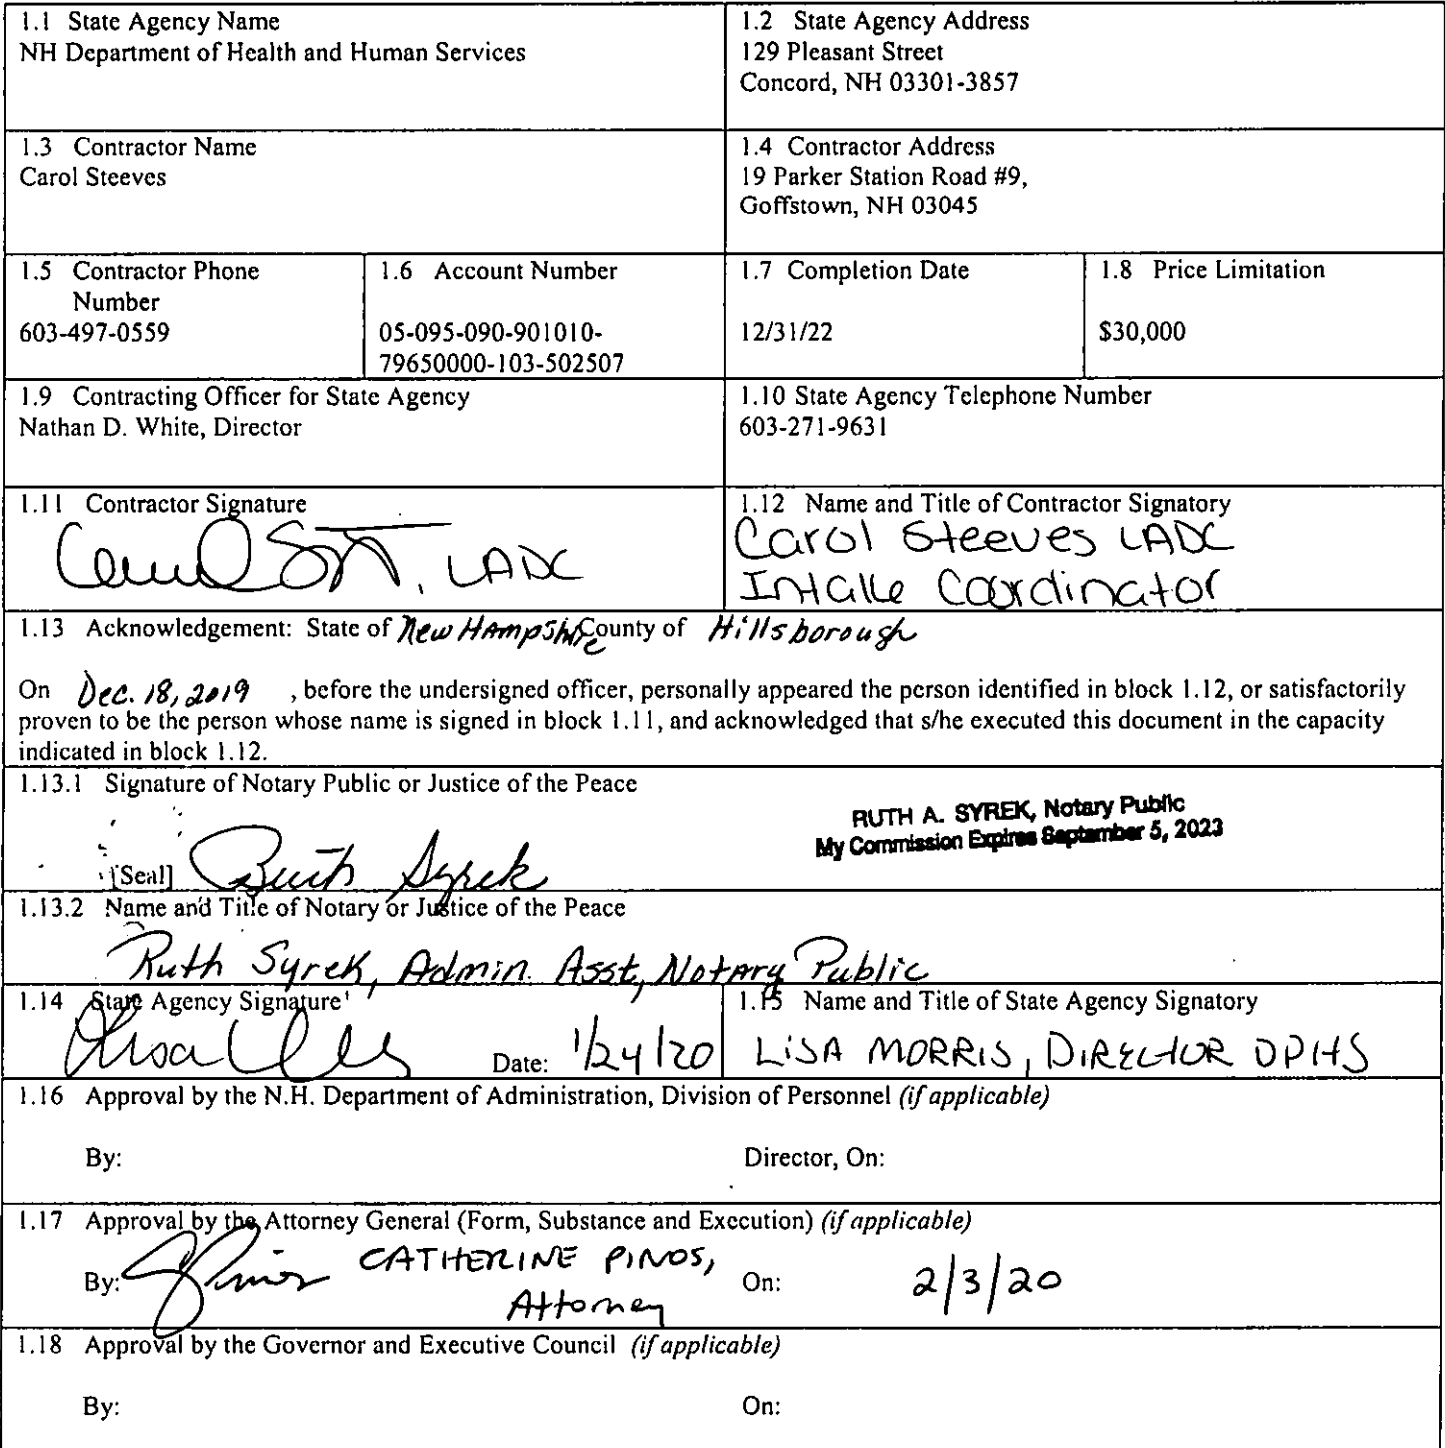 1.1 State Agency Name
NH Department of Health and Human Services
1.2 State Agency Address
129 Pleasant Street
Concord, NH 03301-3857
1.3 Contractor Name
Carol Steeves
1.4 Contractor Address
19 Parker Station Road #9,
Goffstown, NH 03045
1.5 Contractor Phone
Number
603-497-0559
1.6 Account Number
05-095-090-901010-
79650000-103-502507
1.7 Completion Date
12/31/22
1.8 Price Limitation
$30,000
1.9 Contracting Officer for State Agency
Nathan D. White, Director
1.10 State Agency Telephone Number
603-271-9631
1.11 Contractor Signature
, LADC
1.12 Name and Title of Contractor Signatory
Carol Steeves LADC
Intake Coordinator
1.13 Acknowledgement: State of New Hampshire County of Hillsborough
On Dec. 18, 2019 , before the undersigned officer, personally appeared the person identified in block 1.12, or satisfactorily
proven to be the person whose name is signed in block 1.11, and acknowledged that s/he executed this document in the capacity
indicated in block 1.12.
1.13.1 Signature of Notary Public or Justice of the Peace
RUTH A. SYREK, Notary Public
My Commission Expires September 5, 2023
[Seal] Ruth Syrek
1.13.2 Name and Title of Notary or Justice of the Peace
Ruth Syrek, Admin. Asst, Notary Public
1.14 State Agency Signature
Date: 1/24/20
1.15 Name and Title of State Agency Signatory
LISA MORRIS, DIRECTOR DPHS
1.16 Approval by the N.H. Department of Administration, Division of Personnel (if applicable)
By: Director, On:
1.17 Approval by the Attorney General (Form, Substance and Execution) (if applicable)
By: CATHERINE PINOS, On: 2/3/20
Attorney
1.18 Approval by the Governor and Executive Council (if applicable)
By: On: